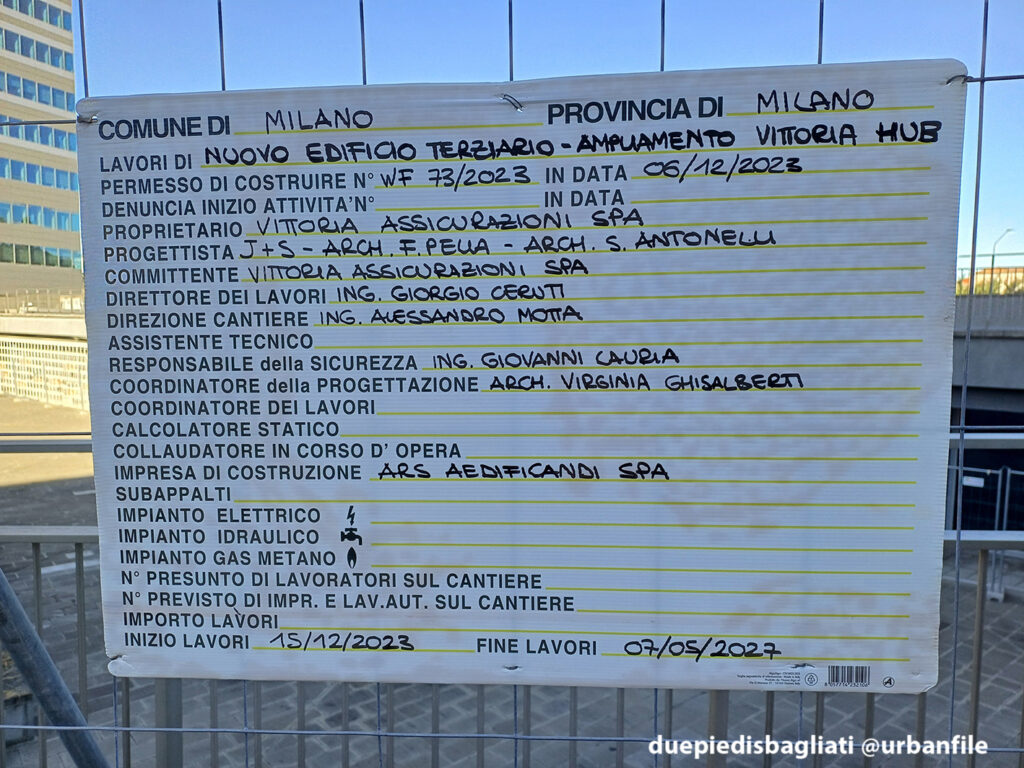 COMUNE DI MILANO PROVINCIA DI MILANO
LAVORI DI NUOVO EDIFICIO TERZIARIO - AMPLIAMENTO VITTORIA HUB
PERMESSO DI COSTRUIRE N° WF 73/2023 IN DATA 06/12/2023
DENUNCIA INIZIO ATTIVITA'N° IN DATA
PROPRIETARIO VITTORIA ASSICURAZIONI SPA
PROGETTISTA J+S - ARCH. F. PELLA - ARCH. S. ANTONELLI
COMMITTENTE VITTORIA ASSICURAZIONI SPA
DIRETTORE DEI LAVORI ING. GIORGIO CERUTI
DIREZIONE CANTIERE ING. ALESSANDRO MOTTA
ASSISTENTE TECNICO
RESPONSABILE della SICUREZZA ING. GIOVANNI LAURIA
COORDINATORE della PROGETTAZIONE ARCH. VIRGINIA GHISALBERTI
COORDINATORE DEI LAVORI
CALCOLATORE STATICO
COLLAUDATORE IN CORSO D' OPERA
IMPRESA DI COSTRUZIONE ARS AEDIFICANDI SPA
SUBAPPALTI
IMPIANTO ELETTRICO
IMPIANTO IDRAULICO
IMPIANTO GAS METANO
N° PRESUNTO DI LAVORATORI SUL CANTIERE
N° PREVISTO DI IMPR. E LAV.AUT. SUL CANTIERE
IMPORTO LAVORI
INIZIO LAVORI 15/12/2023 FINE LAVORI 07/05/2027
duepiedisbagliati @urbanfile